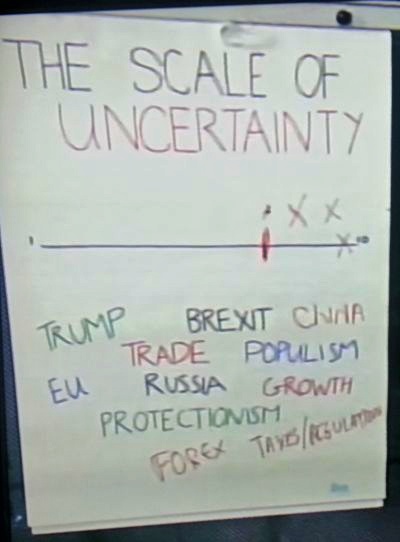 THE SCALE OF
UNCERTAINTY
X X
1 X 10
TRUMP BREXIT CHINA
TRADE POPULISM
EU RUSSIA GROWTH
PROTECTIONISM
FOREX TAXES/REGULATION